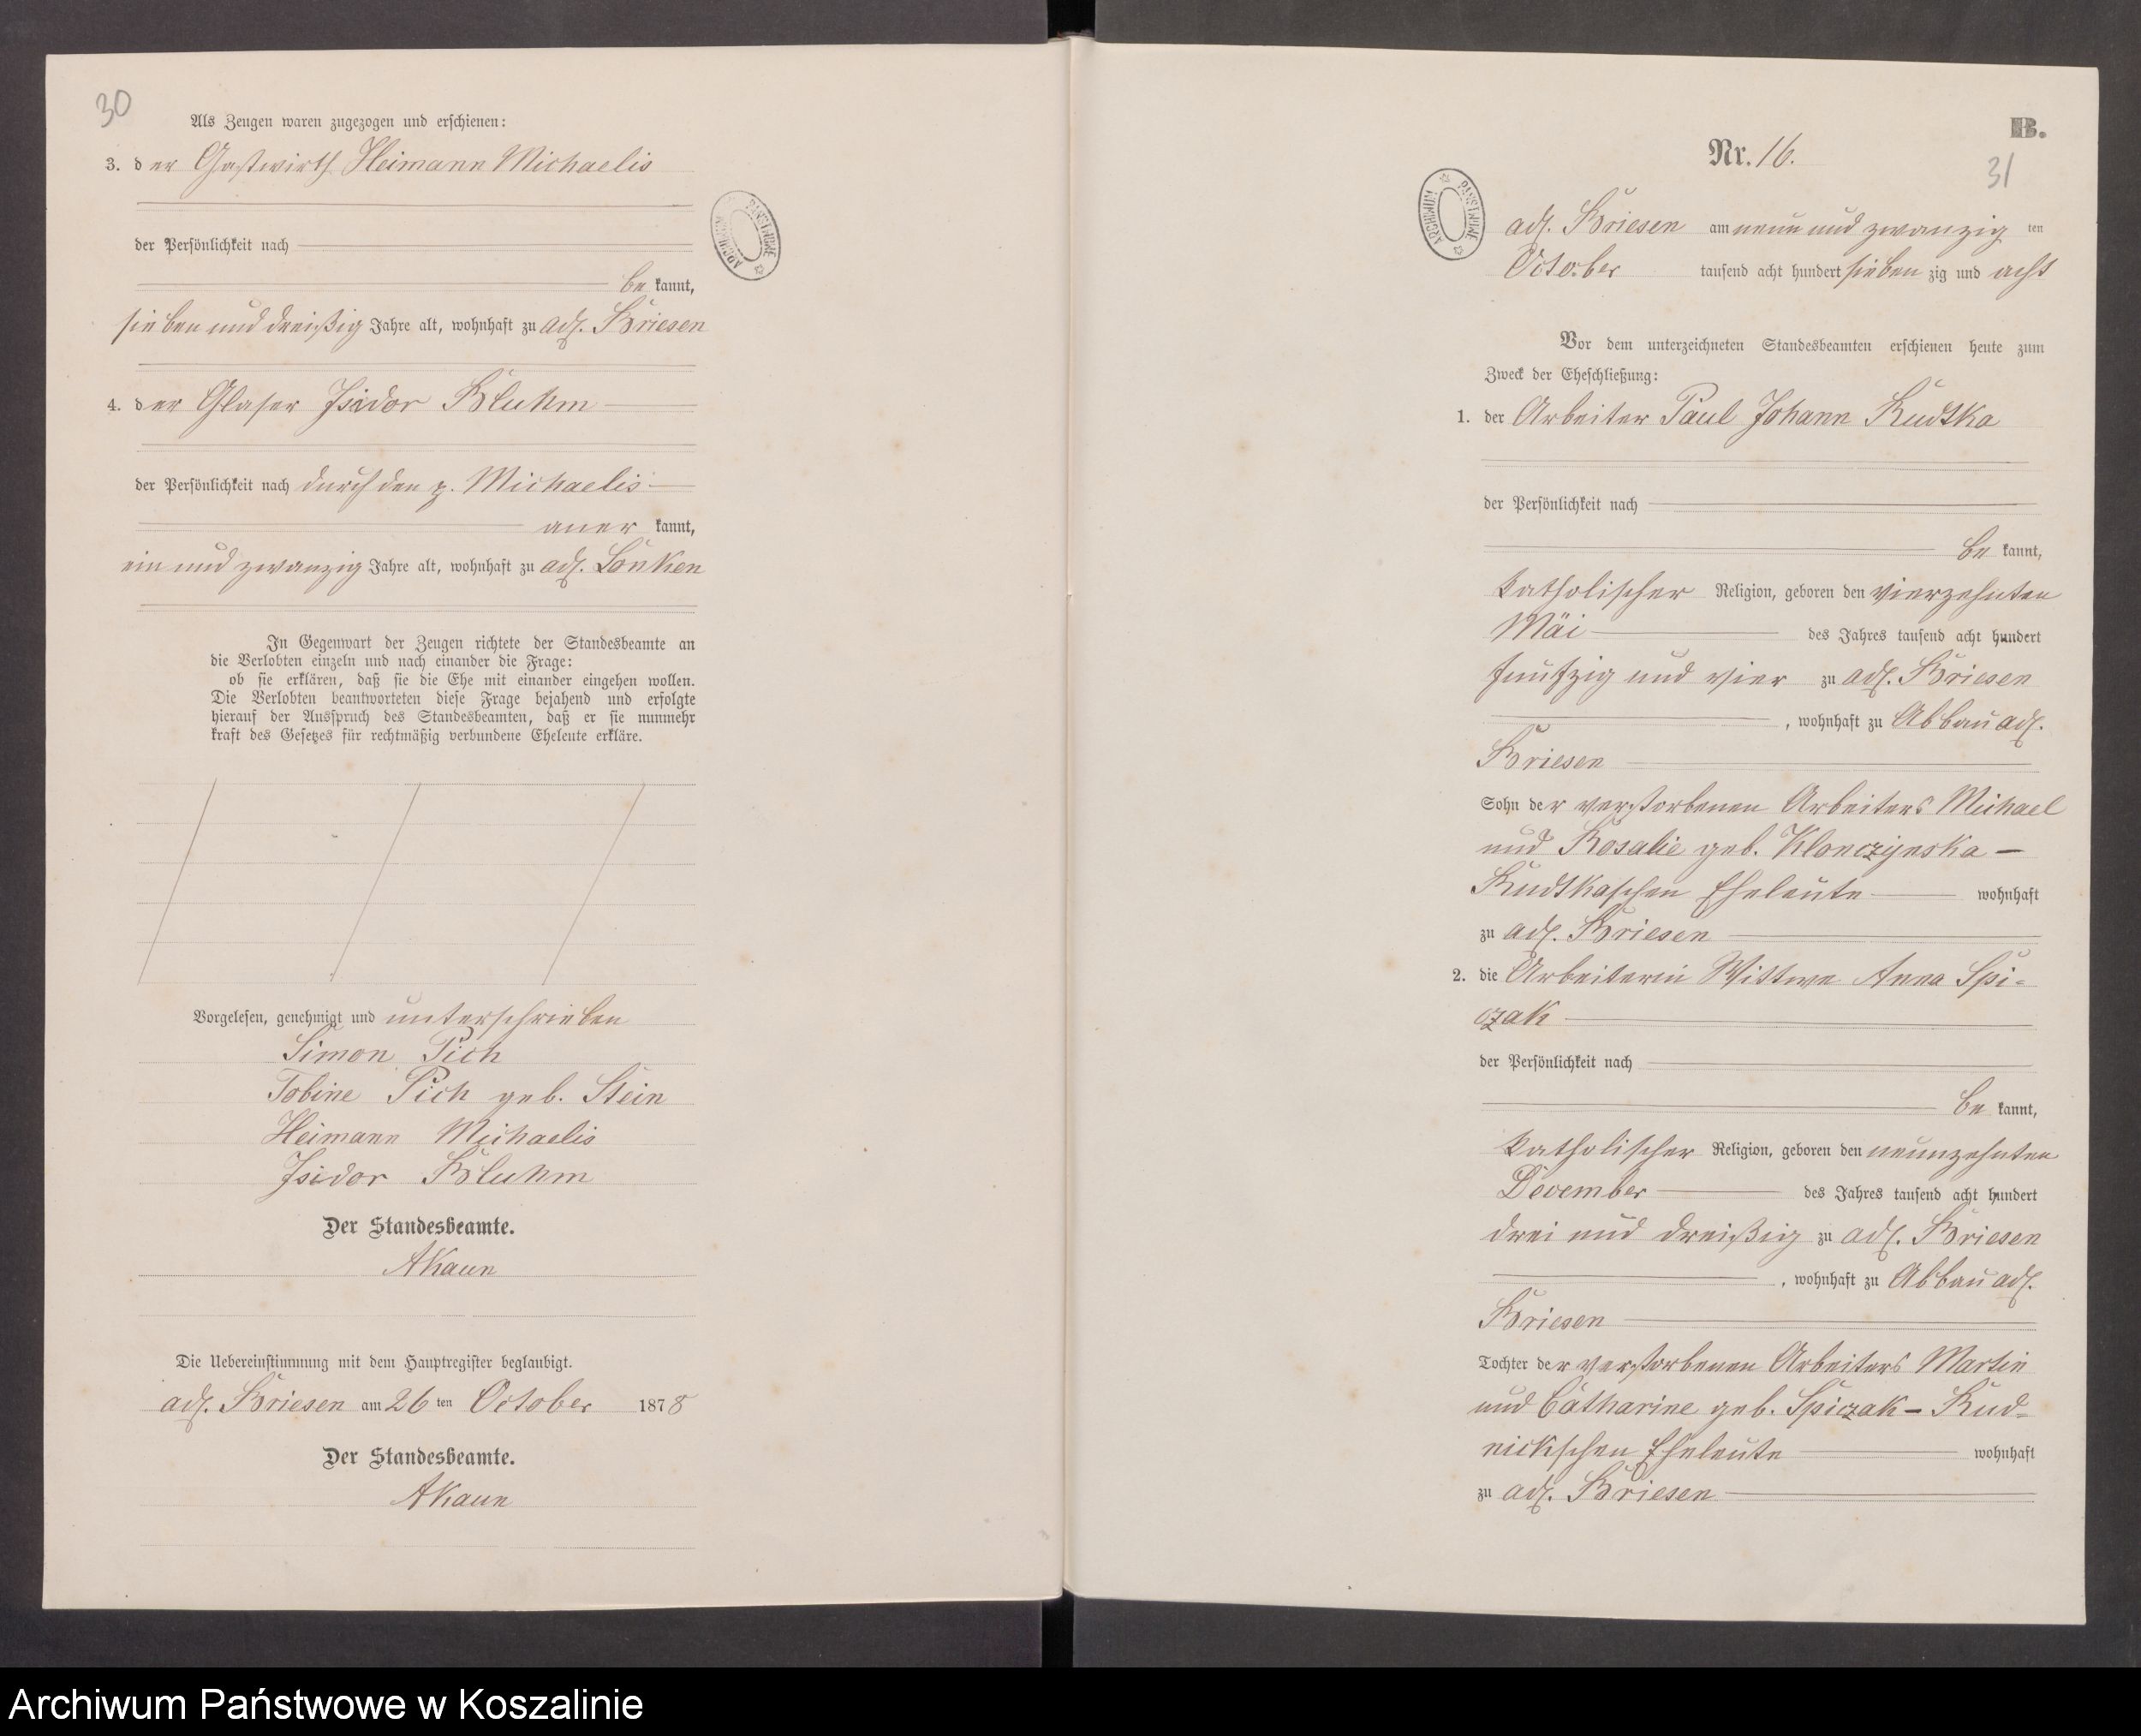 30
Als Zeugen waren zugezogen und erschienen:
3. der Gastwirth Heimann Michaelis
der Persönlichkeit nach
be kannt,
sieben und dreißig Jahre alt, wohnhaft zu adl. Briesen
4. der Glaser Isidor Bluhm
der Persönlichkeit nach durch den p. Michaelis
aner kannt,
ein und zwanzig Jahre alt, wohnhaft zu adl. Lonken
In Gegenwart der Zeugen richtete der Standesbeamte an
die Verlobten einzeln und nach einander die Frage:
ob sie erklären, daß sie die Ehe mit einander eingehen wollen.
Die Verlobten beantworteten diese Frage bejahend und erfolgte
hierauf der Ausspruch des Standesbeamten, daß er sie nunmehr
kraft des Gesetzes für rechtmäßig verbundene Eheleute erkläre.
Vorgelesen, genehmigt und unterschrieben
Simon Pich
Tobine Pich geb. Stein
Heimann Michaelis
Isidor Bluhm
Der Standesbeamte.
AKaun
Die Uebereinstimmung mit dem Hauptregister beglaubigt.
adl. Briesen am 26 ten October 1878
Der Standesbeamte.
AKaun
ARCHIWUM PAŃSTWOWE
B.
Nr. 16.
31
ARCHIWUM PAŃSTWOWE
adl. Briesen am neun und zwanzig ten
October tausend acht hundert sieben zig und acht
Vor dem unterzeichneten Standesbeamten erschienen heute zum
Zweck der Eheschließung:
1. der Arbeiter Paul Johann Kudtka
der Persönlichkeit nach
be kannt,
katholischer Religion, geboren den vierzehnten
Mai des Jahres tausend acht hundert
funfzig und vier zu adl. Briesen
, wohnhaft zu Abbau adl.
Briesen
Sohn der verstorbenen Arbeiters Michael
und Rosalie geb. Klonczynska –
Kudtkaschen Eheleute wohnhaft
zu adl. Briesen
2. die Arbeiterin Wittwe Anna Spi-
czak
der Persönlichkeit nach
be kannt,
katholischer Religion, geboren den neunzehnten
December des Jahres tausend acht hundert
drei und dreißig zu adl. Briesen
, wohnhaft zu Abbau adl.
Briesen
Tochter der verstorbenen Arbeiters Martin
und Catharine geb. Spiczak – Rud-
nickschen Eheleute wohnhaft
zu adl. Briesen
Archiwum Państwowe w Koszalinie